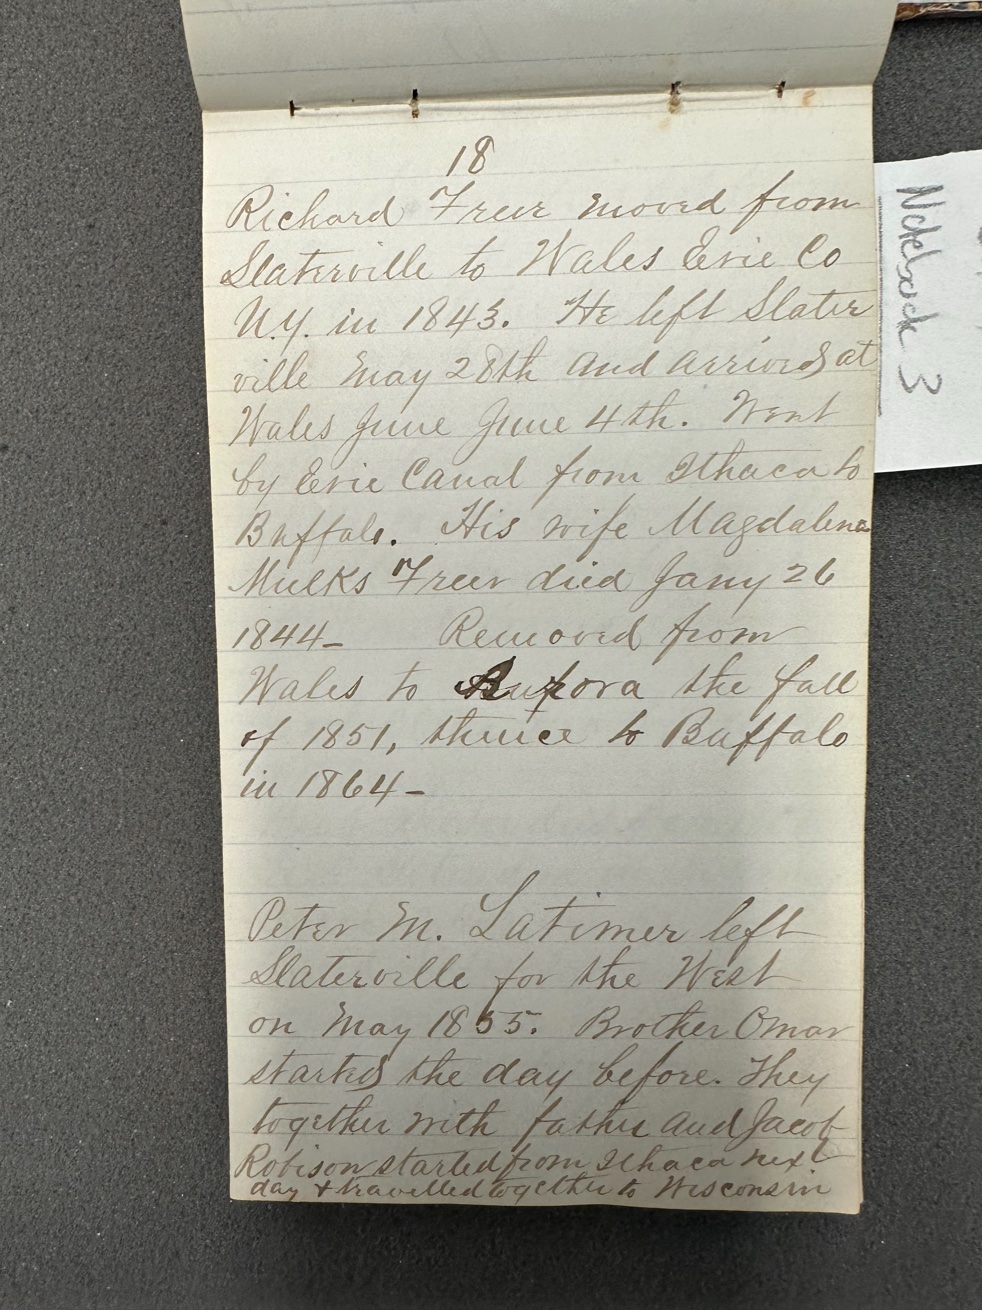 18
Richard Freer moved from
Slaterville to Wales Erie Co
N.Y. in 1843. He left Slater
ville May 28th and arrived at
Wales June June 4th. Went
by Erie Canal from Ithaca to
Buffalo. His wife Magdalena
Mulks Freer died Jany 26
1844_ Removed from
Wales to Aurora the fall
of 1851, thence to Buffalo
in 1864_
Peter M. Latimer left
Slaterville for the West
on May 1855. Brother Omar
started the day before. They
together with father and Jacob
Robison started from Ithaca next
day + travelled together to Wisconsin
Notebook 3